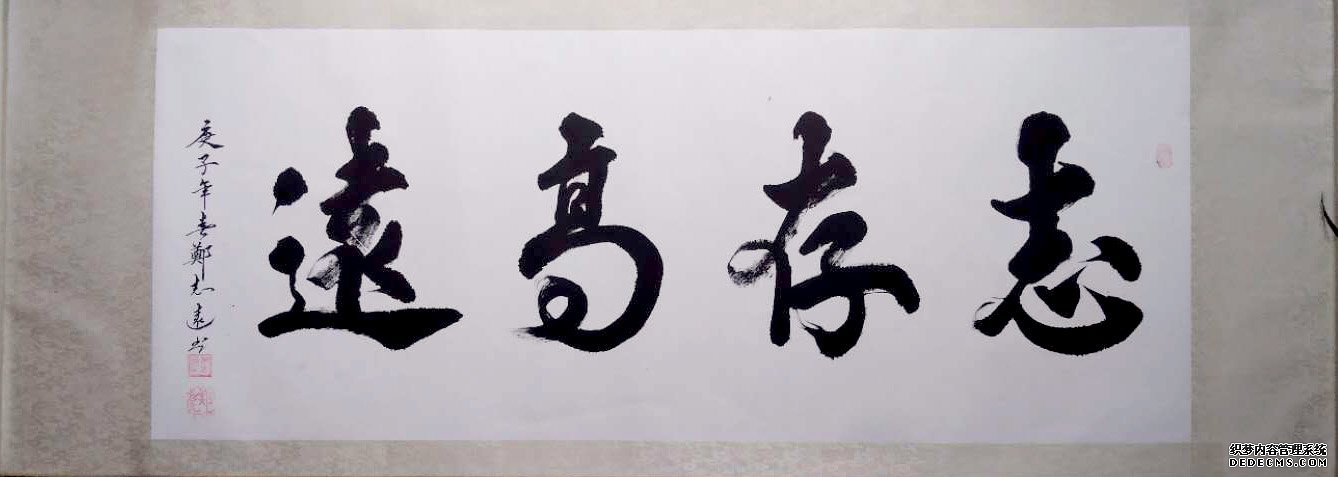 志存高遠
庚子年春鄭志遠书
织梦内容管理系统
DEDECMS.COM